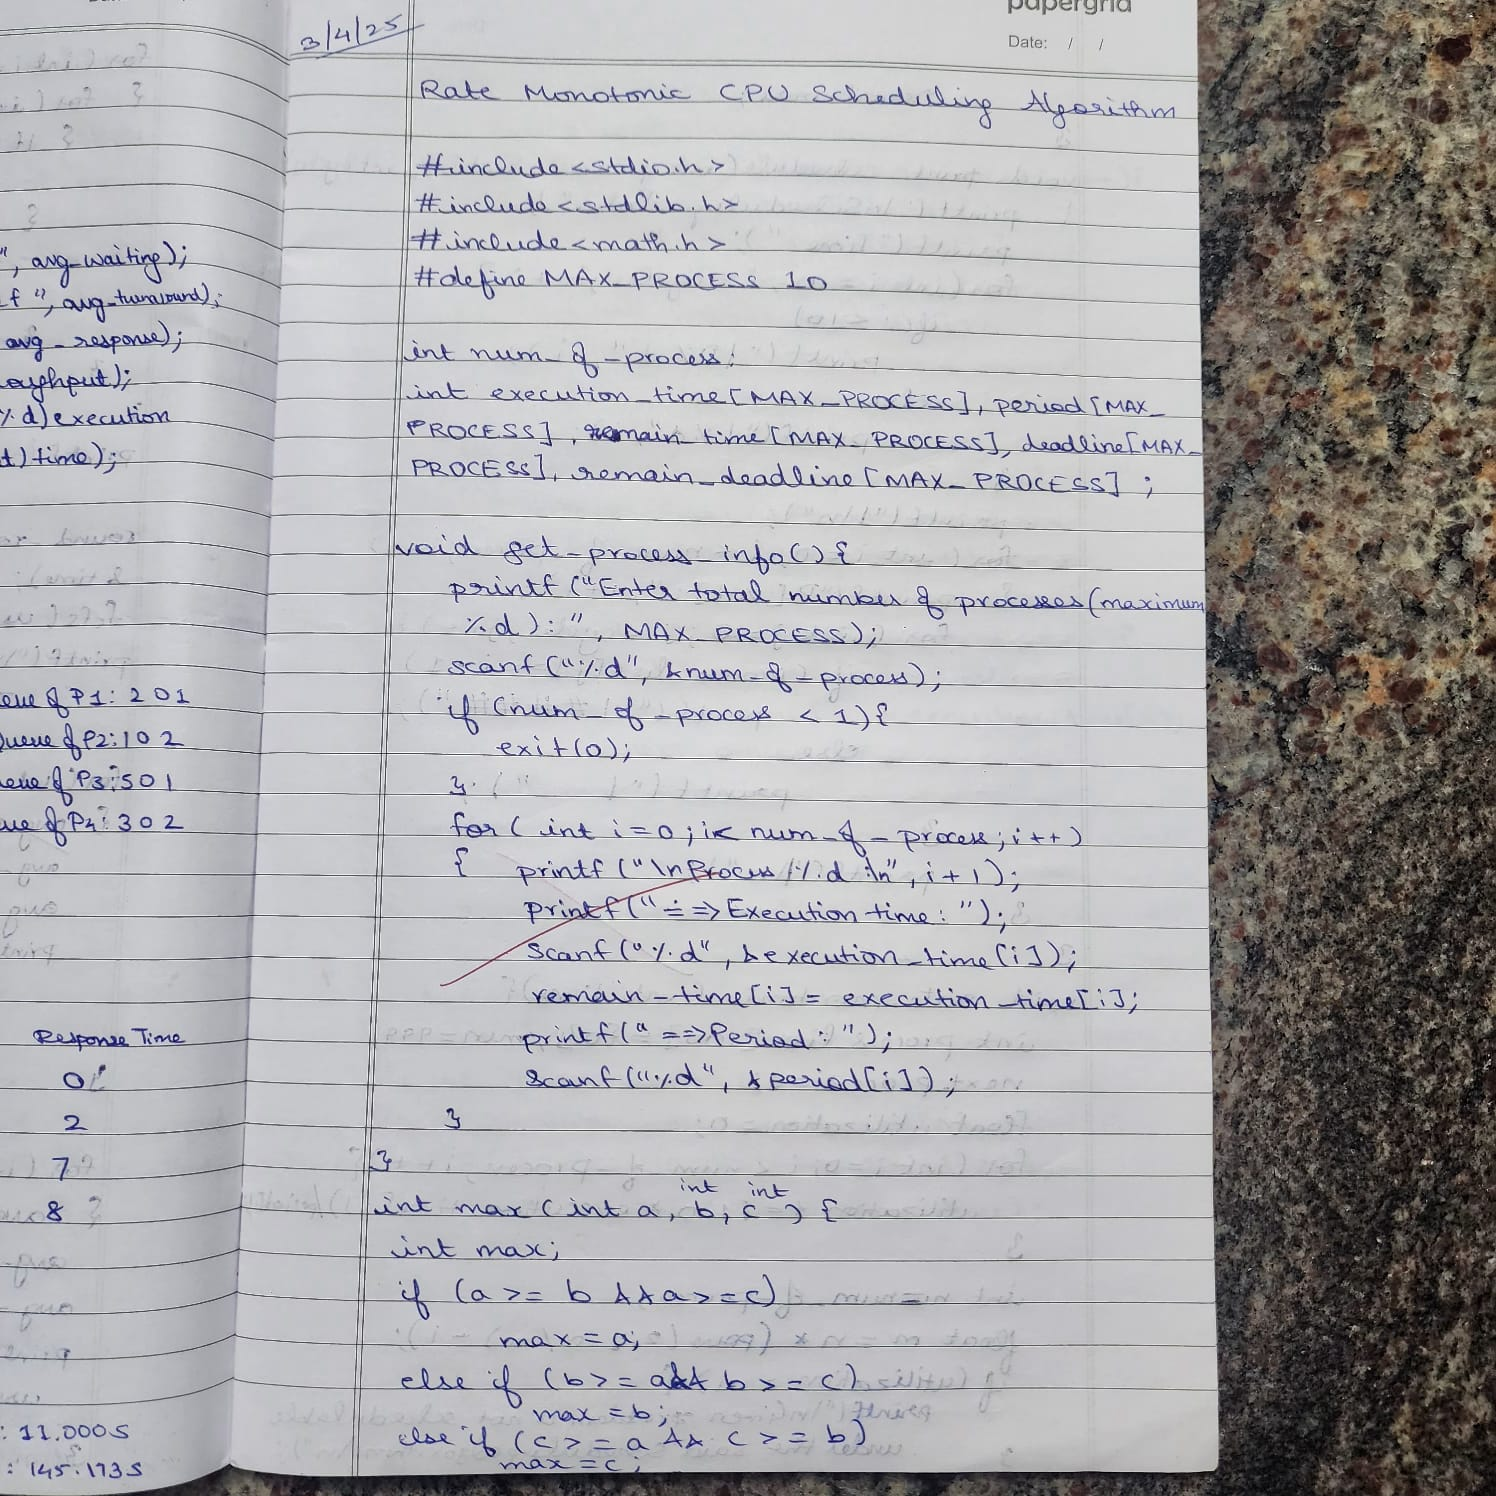 ", avg_waiting);
f ", avg_turnaround);
avg_response);
oughput);
%d) execution
t) time);
eue of P1: 201
Queue of P2: 102
eue of P3: 501
ue of P4: 302
Response Time
0
2
7
8
: 11.000s
: 145.173s
papergrid
Date: / /
3/4/25
Rate Monotonic CPU Scheduling Algorithm
#include <stdio.h>
#include <stdlib.h>
#include <math.h>
#define MAX_PROCESS 10
int num_of_process;
int execution_time[MAX_PROCESS], period[MAX_
PROCESS], remain_time[MAX_PROCESS], deadline[MAX_
PROCESS], remain_deadline[MAX_PROCESS];
void get_process_info() {
printf("Enter total number of processes(maximum
%d): ", MAX_PROCESS);
scanf("%d", &num_of_process);
if (num_of_process < 1) {
exit(0);
}
for(int i=0; i< num_of_process; i++)
{ printf("\nProcess %d :\n", i+1);
printf("==> Execution time: ");
scanf("%d", &execution_time[i]);
remain_time[i] = execution_time[i];
printf("==> Period: ");
scanf("%d", &period[i]);
}
}
int max(int a, int b, int c) {
int max;
if (a >= b && a >= c)
max = a;
else if (b >= a && b >= c)
max = b;
else if (c >= a && c >= b)
max = c;